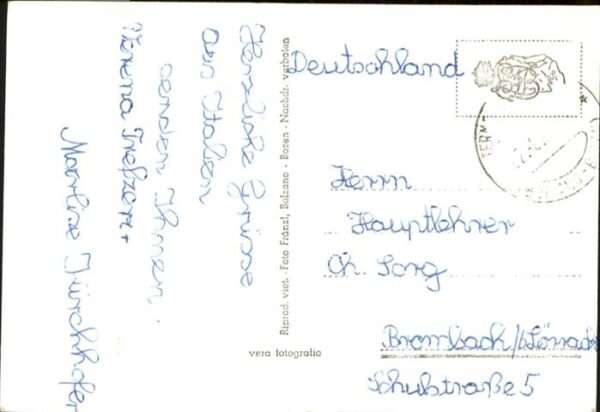 Herzliche Grüsse
aus Italien
senden Ihnen.
Verena Trefzer +
Marlise Kirchhofer
Riprod. viet. - Foto Fränzl, Bolzano - Bozen - Nachdr. verboten
vera fotografia
Deutschland
Herrn
Hauptlehrer
Ch. Sorg
Brombach/Lörrach
Schulstraße 5